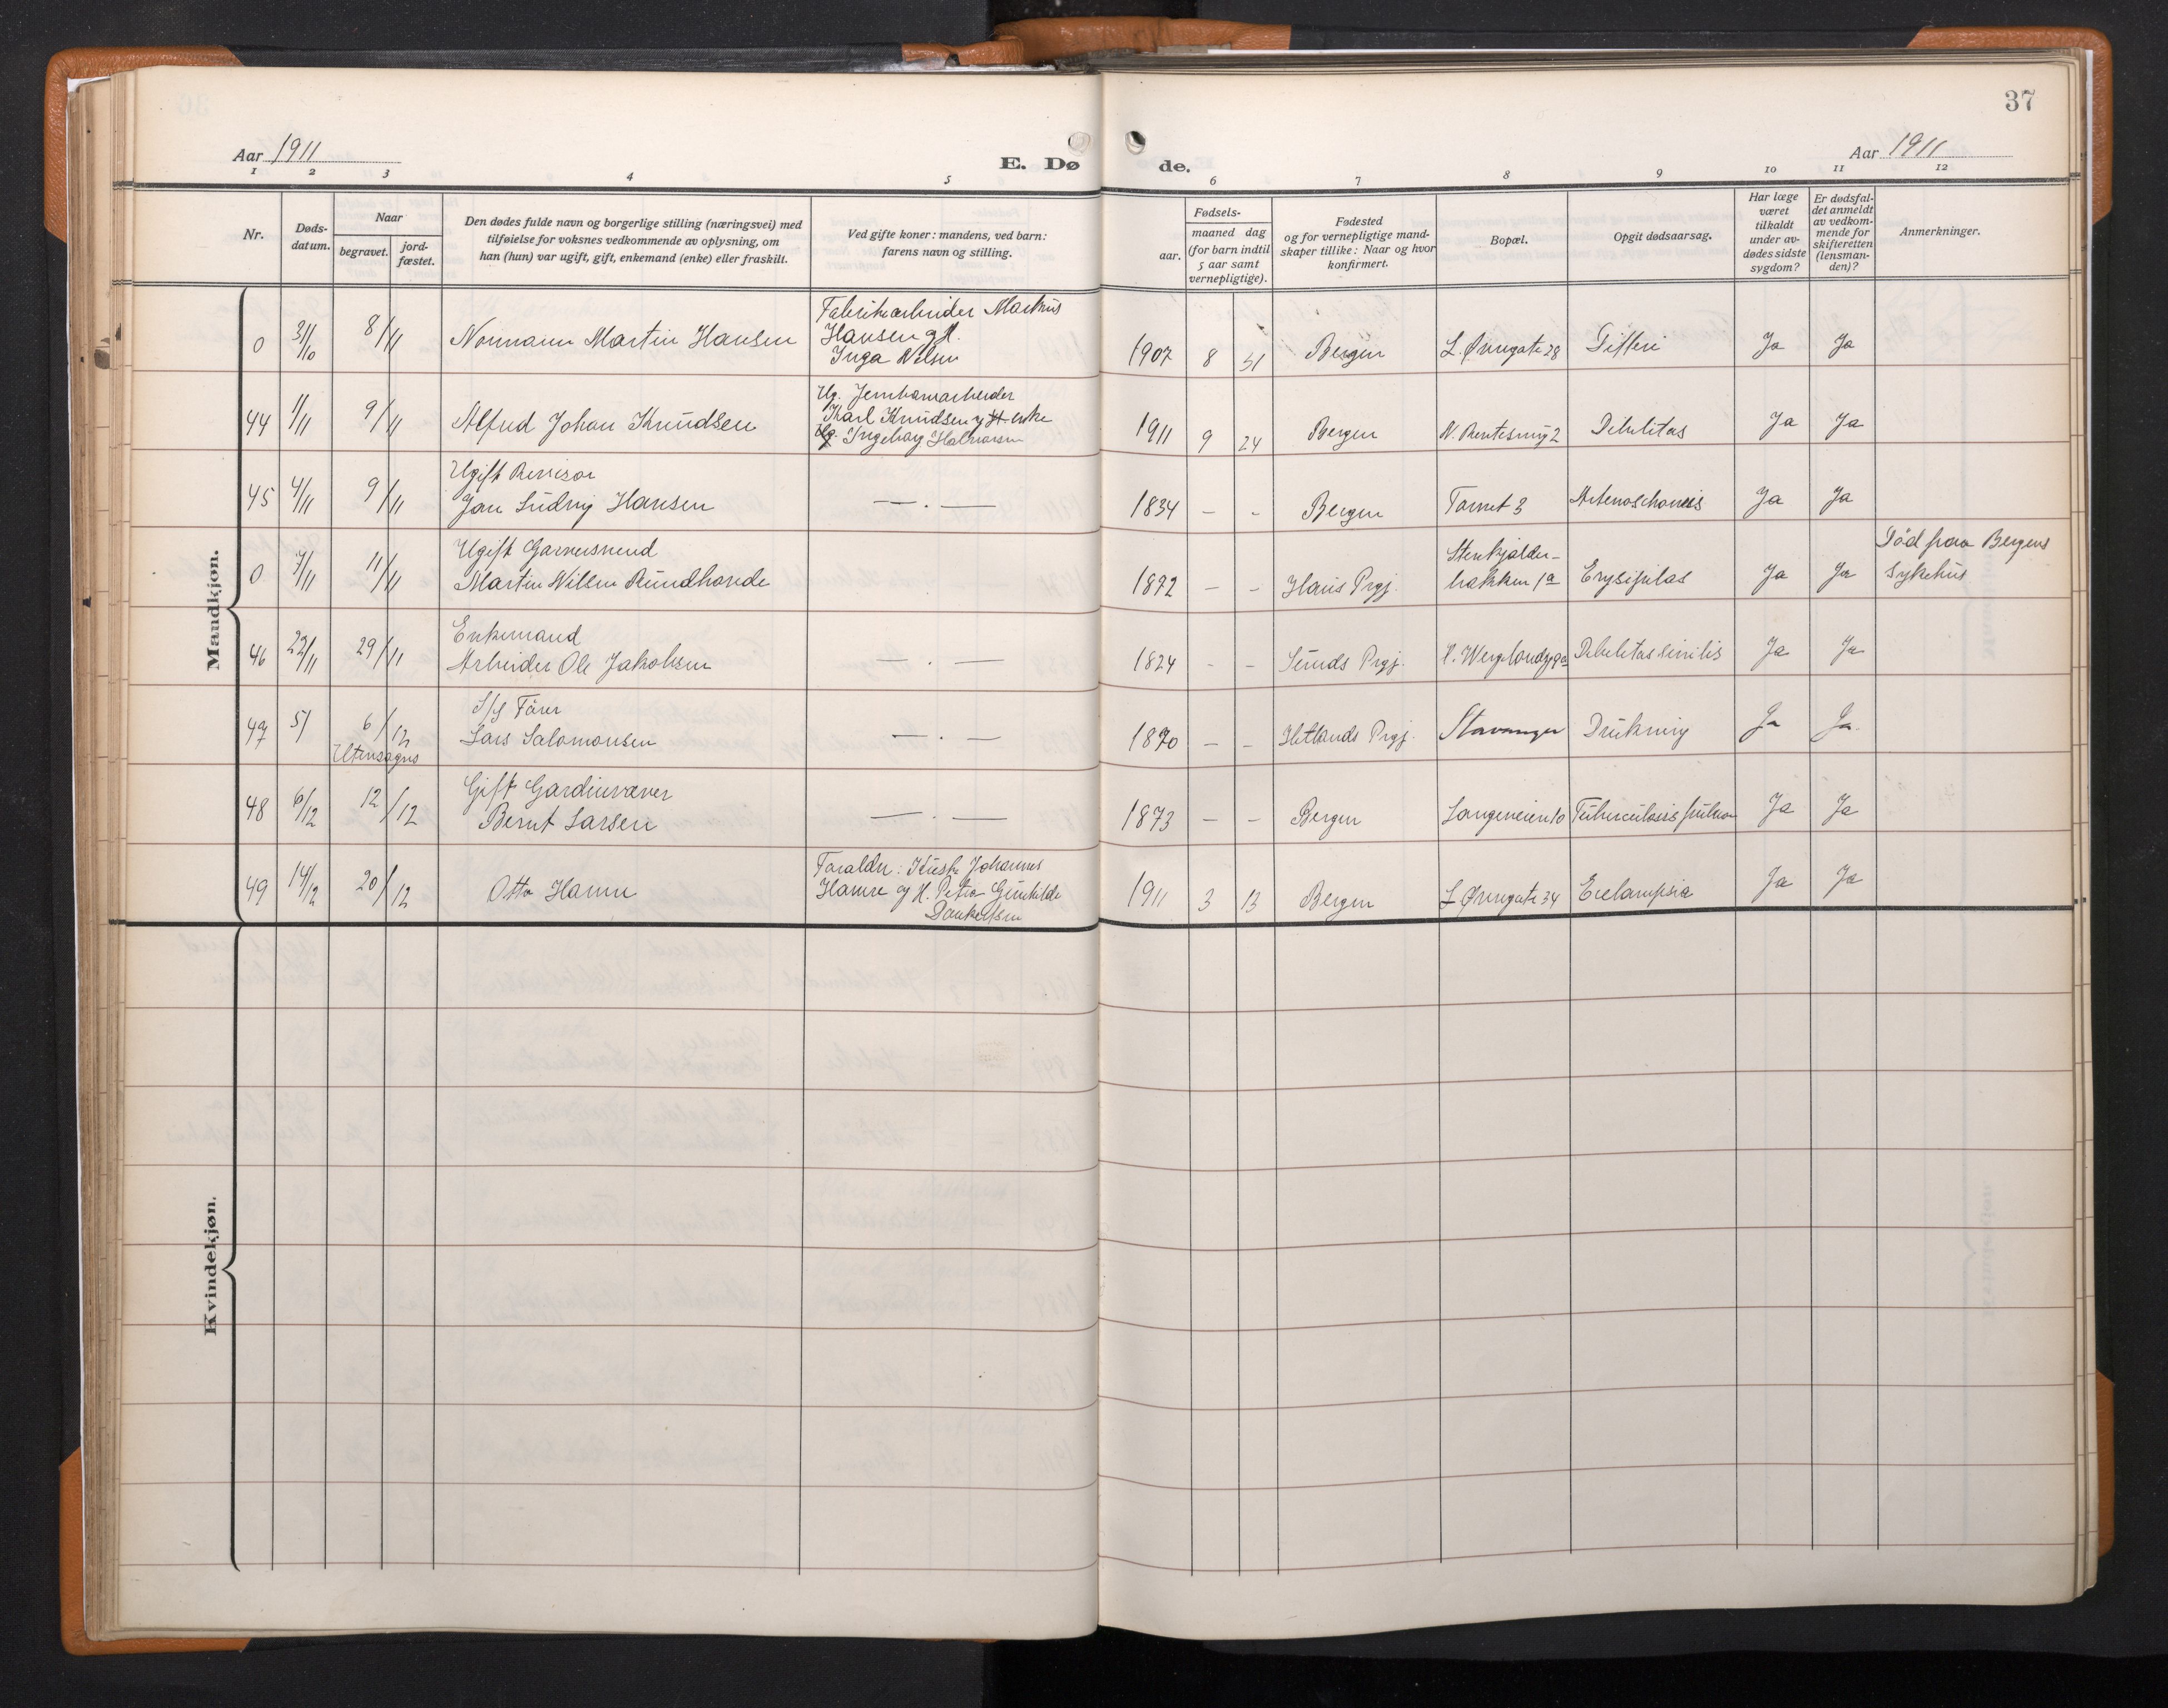 37
Aar 1911
E. Dø de.
Aar 1911
1 2 3 4 5 6 7 8 9 10 11 12
Nr.
Døds-
datum.
Naar
begravet.
jord-
fæstet.
Den dødes fulde navn og borgerlige stilling (næringsvei) med
tilføielse for voksnes vedkommende av oplysning, om
han (hun) var ugift, gift, enkemand (enke) eller fraskilt.
Ved gifte koner: mandens, ved barn:
farens navn og stilling.
Fødsels-
aar.
maaned dag
(for barn indtil
5 aar samt
vernepligtige).
Fødested
og for vernepligtige mand-
skaper tillike: Naar og hvor
konfirmert.
Bopæl.
Opgit dødsaarsag.
Har læge
været
tilkaldt
under av-
dødes sidste
sygdom?
Er dødsfal-
det anmeldt
av vedkom-
mende for
skifteretten
(lensman-
den)?
Anmerkninger.
Mandkjøn.
Fabrikarbeider Markus
0 31/10 8/11 Normann Martin Hansen Hansen og H. 1907 8 31 Bergen L. Øvregate 28 Difteri Ja Ja
Inga Nilsen
Ug. Jernbanearbeider
Karl Knudsen og enke
44 1/11 9/11 Alfred Johan Knudsen Ingeborg Halvorsen 1911 9 24 Bergen 2 Debilitas Ja Ja
Ugift Revisor
45 4/11 9/11 Jan Ludvig Hansen — . — 1834 - - Bergen Tornet 3 Ja Ja
Ugift Garversvend Stenkjelder- Död paa Bergens
0 7/11 11/11 Martin Nilsen Rundhovde 1872 - - Haus Prgj. bakken 1a Erysipelas Ja Ja Sykehus
Enkemand
46 22/11 29/11 Arbeider Ole Jakobsen — . — 1824 - - Sunds Prgj. H. Wergelandsg 9a Debilitas senilis Ja Ja
S/S Fører
47 5/ 6/12 Lars Salomonsen — . — 1870 - - Hetlands Prgj. Stavanger Drukning Ja Ja.
Utensogns
Gift Gardinvæver
48 6/12 12/12 Bernt Larsen — . — 1873 - - Bergen Langeveien 10 Tuberculosis pulmon Ja Ja
Foraldre: Kusk Johannes
49 14/12 20/12 Otto Hamre Hamre og H. Petra Gunhilde 1911 3 13 Bergen L Øvregate 34 Eclampsia Ja Ja
Dankertsen
Kvindekjøn.